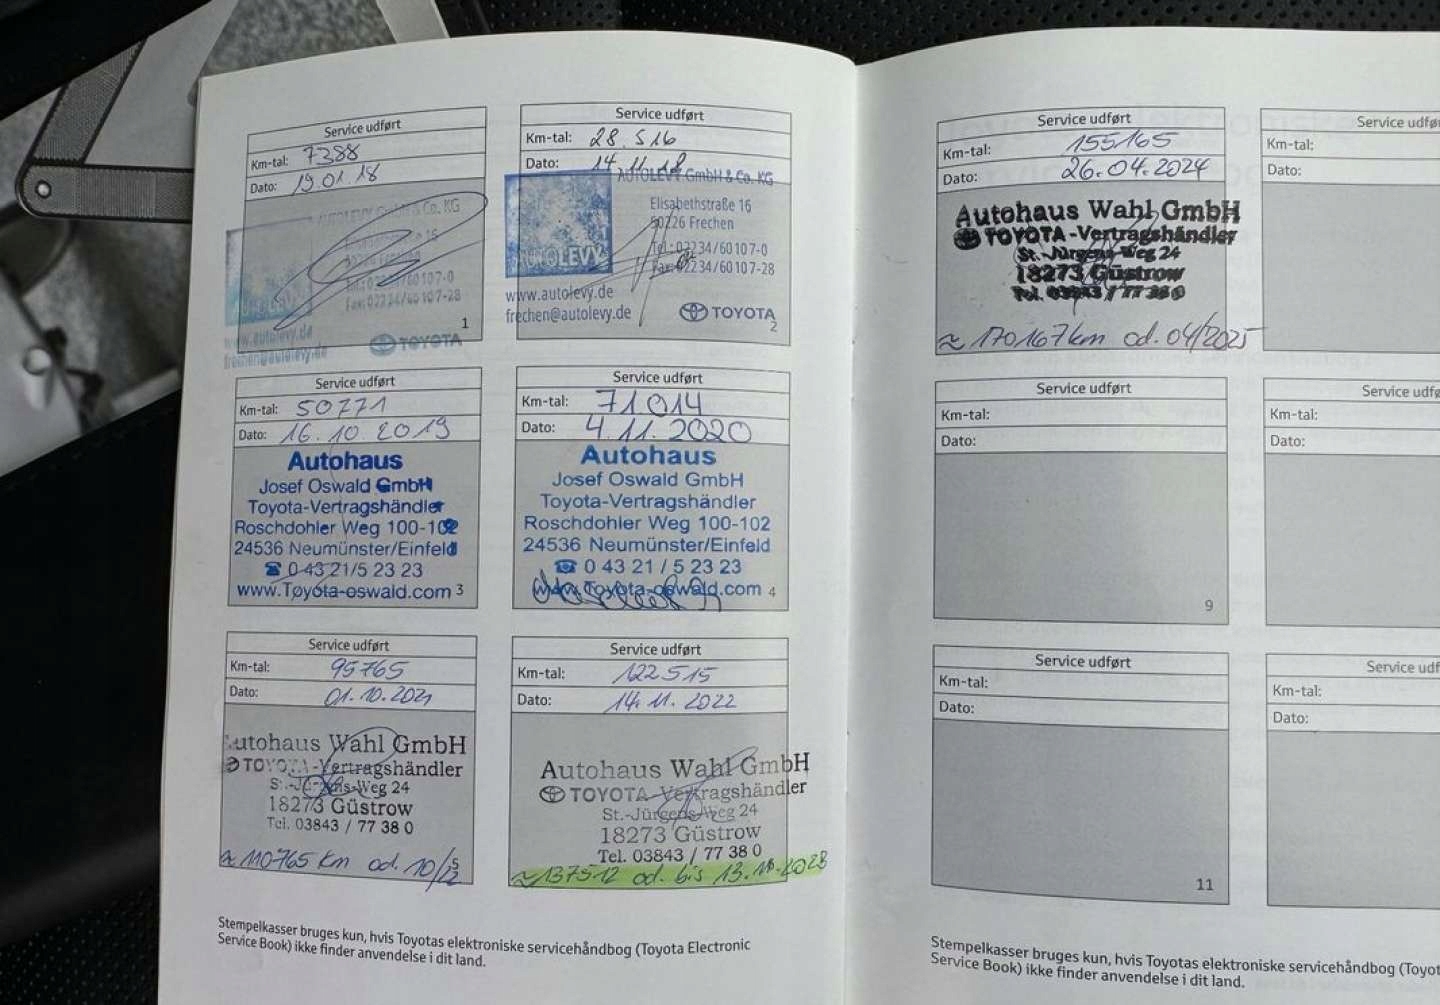 Service udført
Km-tal: 7388
Dato: 19.01.18
AUTOLEVY GmbH & Co. KG
16
Frechen
Tel.: 02234/60107-0
Fax: 02234/60107-28
www.autolevy.de
frechen@autolevy.de
TOYOTA
1
Service udført
Km-tal: 28.516
Dato: 14.11.18
AUTOLEVY GmbH & Co. KG
Elisabethstraße 16
50226 Frechen
AUTOLEVY
Tel.: 02234/60107-0
Fax: 02234/60107-28
www.autolevy.de
frechen@autolevy.de
TOYOTA
2
Service udført
Km-tal: 50771
Dato: 16.10.2019
Autohaus
Josef Oswald GmbH
Toyota-Vertragshändler
Roschdohler Weg 100-102
24536 Neumünster/Einfeld
☎ 0 43 21/5 23 23
www.Toyota-oswald.com 3
Service udført
Km-tal: 71014
Dato: 4.11.2020
Autohaus
Josef Oswald GmbH
Toyota-Vertragshändler
Roschdohler Weg 100-102
24536 Neumünster/Einfeld
☎ 0 43 21 / 5 23 23
www.Toyota-oswald.com 4
Service udført
Km-tal: 95765
Dato: 01.10.2021
Autohaus Wahl GmbH
TOYOTA-Vertragshändler
St.-Jürgens-Weg 24
18273 Güstrow
Tel. 03843 / 77 38 0
≈ 110765 km od. 10/22
Service udført
Km-tal: 122515
Dato: 14.11.2022
Autohaus Wahl GmbH
TOYOTA-Vertragshändler
St.-Jürgens-Weg 24
18273 Güstrow
Tel. 03843 / 77 38 0
≈ 137512 od. bis 13.11.2023
Stempelkasser bruges kun, hvis Toyotas elektroniske servicehåndbog (Toyota Electronic
Service Book) ikke finder anvendelse i dit land.
Service udført
Km-tal: 155165
Dato: 26.04.2024
Autohaus Wahl GmbH
TOYOTA-Vertragshändler
St.-Jürgens-Weg 24
18273 Güstrow
Tel. 03843 / 77 38 0
≈ 170167 km od. 04/2025
Service udfø
Km-tal:
Dato:
Service udført
Km-tal:
Dato:
9
Service udfø
Km-tal:
Dato:
Service udført
Km-tal:
Dato:
11
Service udf
Km-tal:
Dato:
Stempelkasser bruges kun, hvis Toyotas elektroniske servicehåndbog (Toyot
Service Book) ikke finder anvendelse i dit land.